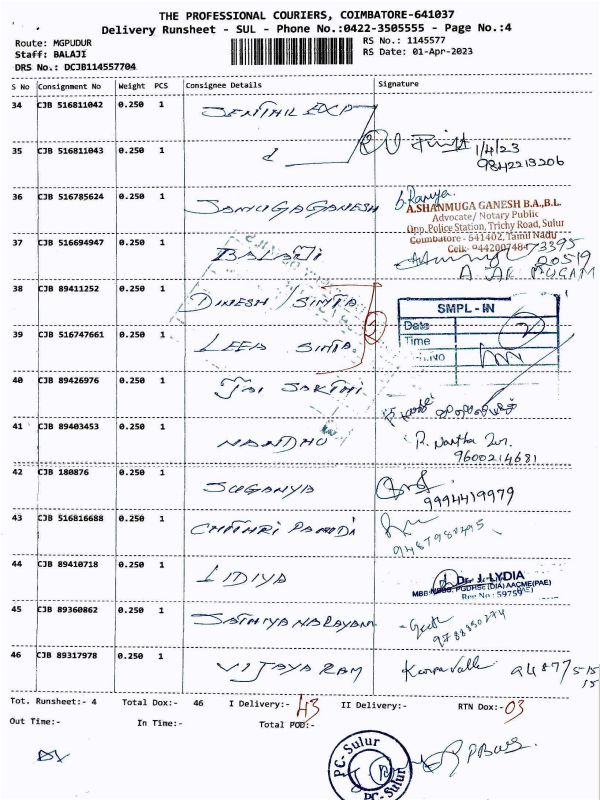 THE PROFESSIONAL COURIERS, COIMBATORE-641037
Delivery Runsheet - SUL - Phone No.:0422-3505555 - Page No.:4
Route: MGPUDUR
RS No.: 1145577
Staff: BALAJI
RS Date: 01-Apr-2023
DRS No.: DCJB114557704
S No Consignment No Weight PCS Consignee Details Signature
34 CJB 516811042 0.250 1 SENTHIL EXP
1/4/23
35 CJB 516811043 0.250 1
9842213206
36 CJB 516785624 0.250 1 SAMUGAGANESH
b. Ramya.
A.SHANMUGA GANESH B.A.,B.L.
Advocate/ Notary Public
Opp. Police Station, Trichy Road, Sulur
Coimbatore - 641402, Tamil Nadu
37 CJB 516694947 0.250 1 BALAJI
38 CJB 89411252 0.250 1 DINESH / SIMTA
SMPL - IN
Date
Time
39 CJB 516747661 0.250 1 LEEA SIMTA
40 CJB 89426976 0.250 1 JAI SAKTHI
41 CJB 89403453 0.250 1 NANDHU
9600214681
42 CJB 180876 0.250 1 SUGANYA
9994419979
43 CJB 516816688 0.250 1
44 CJB 89410718 0.250 1 LIDIYA
Dr. J. LYDIA
45 CJB 89360862 0.250 1 SATHIYANARAYANAN
46 CJB 89317978 0.250 1 VIJAYA RAM
Tot. Runsheet:- 4 Total Dox:- 46 I Delivery:- 43 II Delivery:- RTN Dox:- 03
Out Time:- In Time:- Total POD:-
PC-Sulur
PC-Sulur